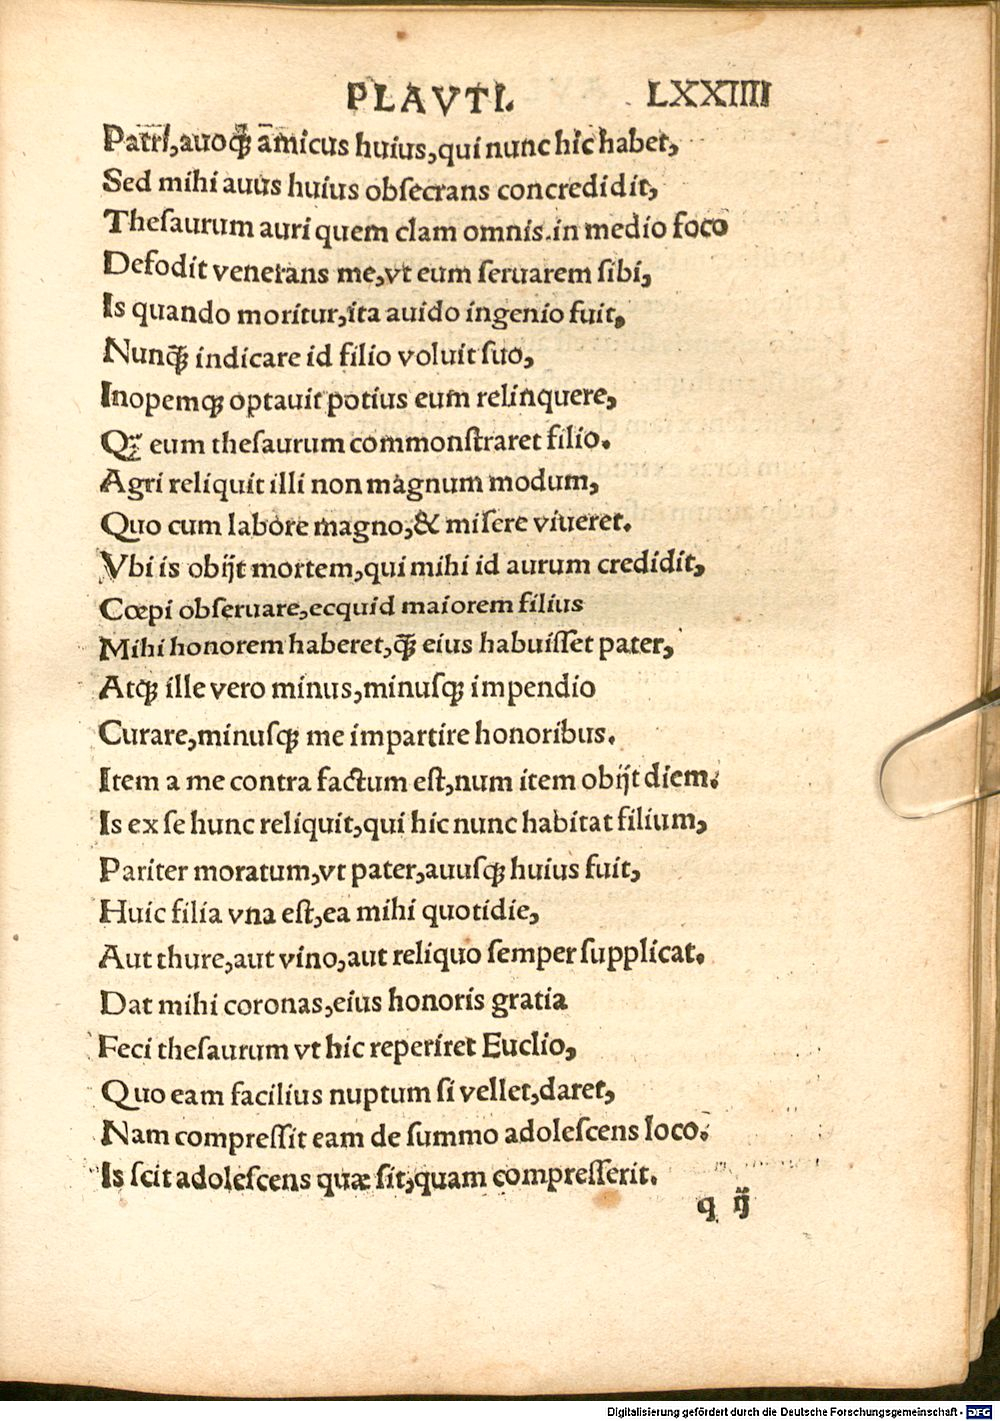 PLAVTI. LXXIIII
Patri, auoqꝫ amicus huius, qui nunc hic habet,
Sed mihi auus huius obsecrans concredidit,
Theſaurum auri quem clam omnis. in medio foco
Defodit venerans me, vt eum ſeruarem ſibi,
Is quando moritur, ita auido ingenio fuit,
Nunqꝫ̃ indicare id filio voluit ſuo,
Inopemqꝫ optauit potius eum relinquere,
Qꝫ̃ eum theſaurum commonſtraret filio.
Agri reliquit illi non magnum modum,
Quo cum labore magno, & miſere viueret.
Vbi is obijt mortem, qui mihi id aurum credidit,
Cœpi obſeruare, ecquid maiorem filius
Mihi honorem haberet, qꝫ̃ eius habuiſſet pater,
Atqꝫ ille vero minus, minuſqꝫ impendio
Curare, minuſqꝫ me impartire honoribus.
Item a me contra factum eſt, num item obijt diem.
Is ex ſe hunc reliquit, qui hic nunc habitat filium,
Pariter moratum, vt pater, auuſqꝫ huius fuit,
Huic filia vna eſt, ea mihi quotidie,
Aut thure, aut vino, aut reliquo ſemper ſupplicat.
Dat mihi coronas, eius honoris gratia
Feci theſaurum vt hic reperiret Euclio,
Quo eam facilius nuptum ſi vellet, daret,
Nam compreſſit eam de ſummo adoleſcens loco.
Is ſcit adoleſcens quæ ſit, quam compreſſerit.
q ij
Digitalisierung gefördert durch die Deutsche Forschungsgemeinschaft - DFG